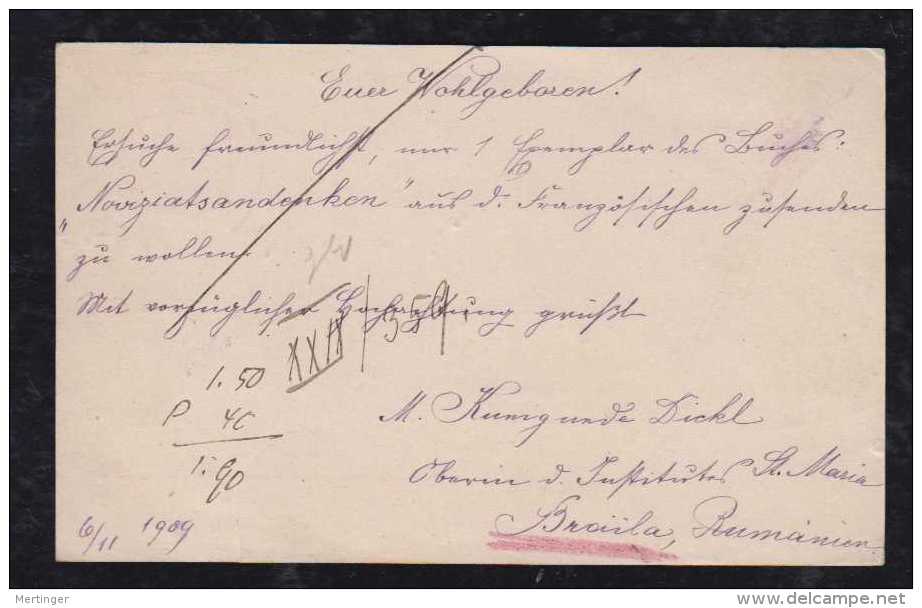 Euer Wohlgeboren!
Ersuche freundlichst, nur 1 Exemplar des Buches:
"Noviziatsandenken" aus d. Französischen zusenden
zu wollen.
Mit vorzüglicher Hochachtung grüßt
XXII / 359
1.50
P 40
1.90
M. Kunigunde Dickl
Oberin d. Institutes St. Maria
Braila, Rumänien.
6/11 1909
Mertinger
www.delcampe.net